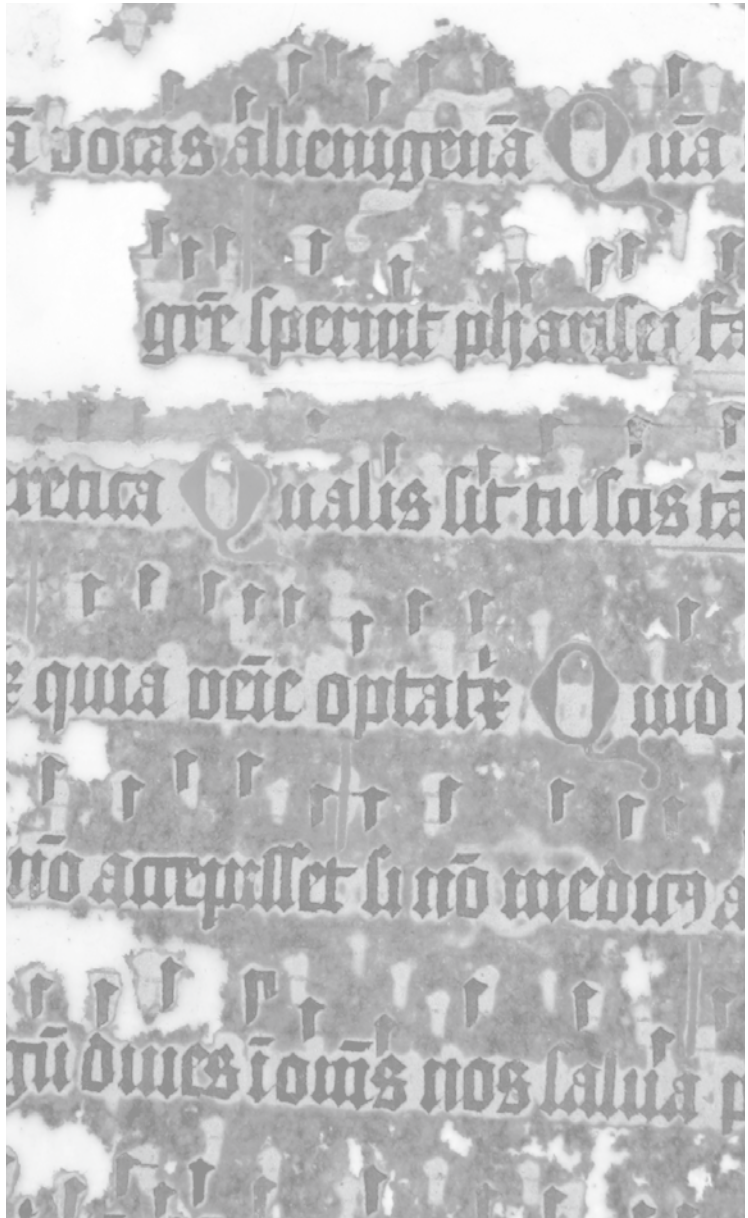 ā vocas alienigenā Quā
grē spernūt pharisei fa
retica Qualis sit tu scis tā
quia veīe optatꝝ Quid
nō accepisset si nō medicꝰ a
gū dives ī om̄s nos salva p